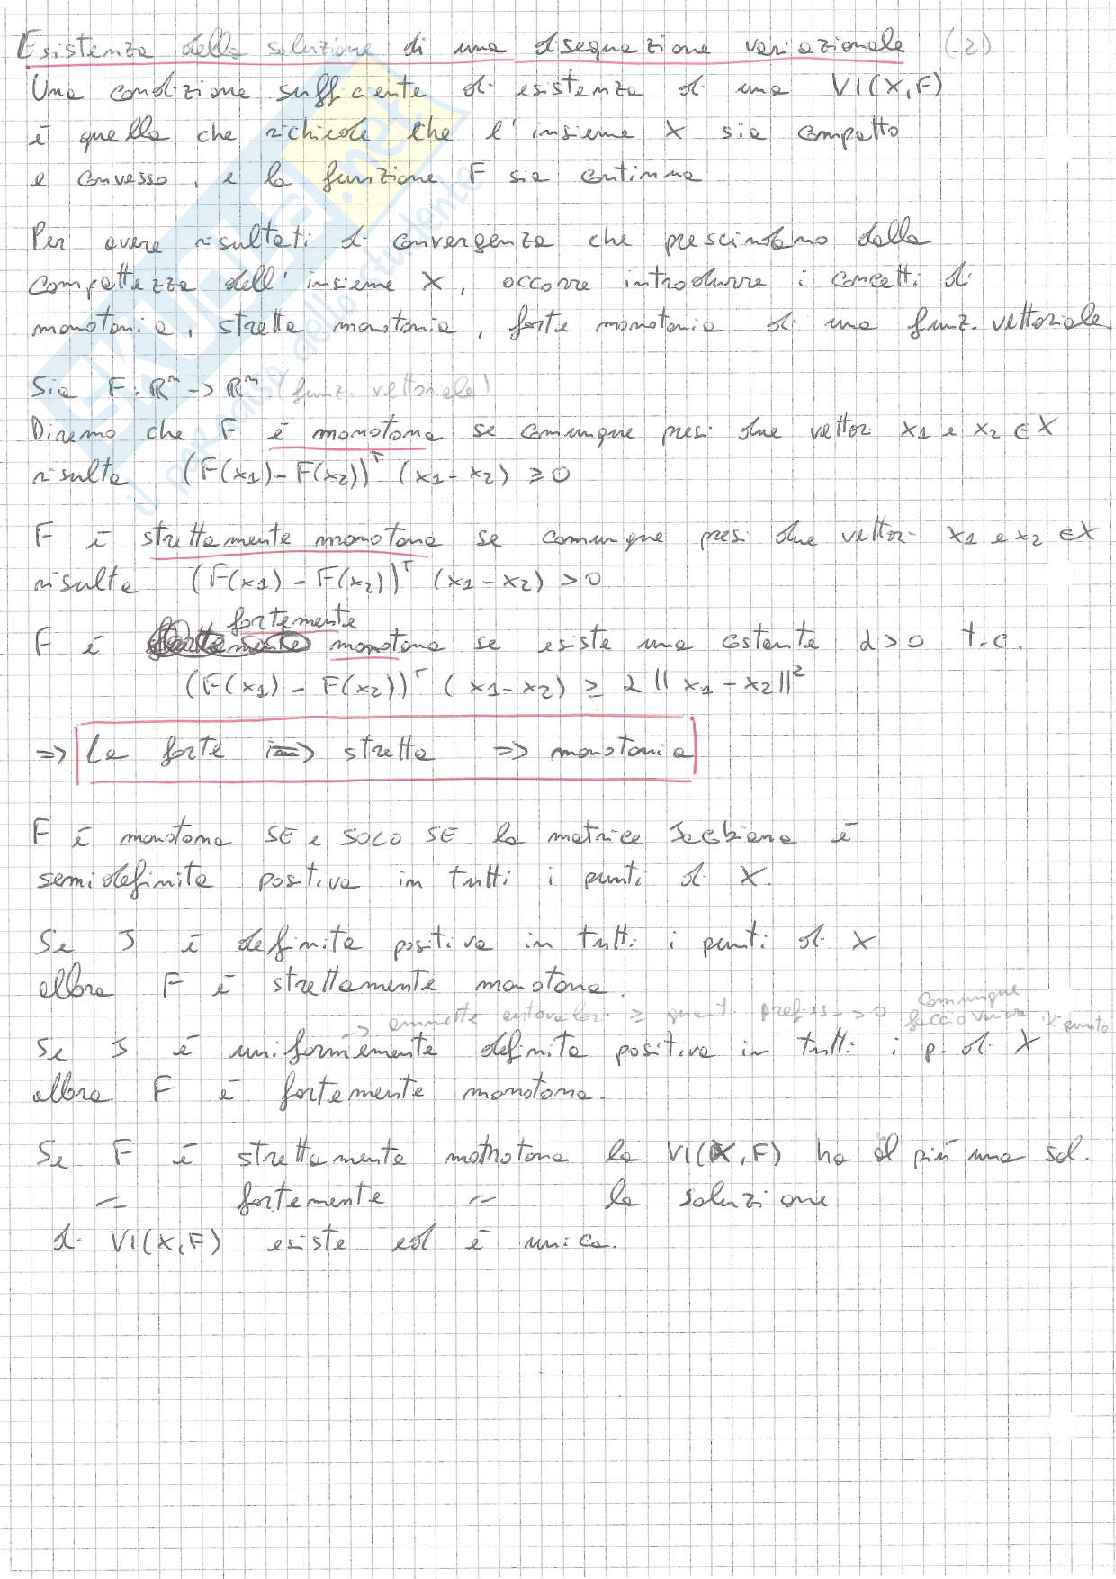 Esistenza della soluzione di una disequazione variazionale (2)
Una condizione sufficente di esistenza di una VI(X,F)
è quella che richiede che l'insieme X sia compatto
e convesso, e la funzione F sia continua
Per avere risultati di convergenza che prescindano dalla
compattezza dell'insieme X, occorre introdurre i concetti di
monotonia, stretta monotonia, forte monotonia di una funz. vettoriale
Sia F: ℝⁿ -> ℝⁿ (funz. vettoriale)
Diremo che F è monotona se comunque presi due vettor x1 e x2 ∈ X
risulta (F(x1) - F(x2))ᵀ (x1 - x2) ≥ 0
F è strettamente monotona se comunque presi due vettor x1 e x2 ∈ X
risulta (F(x1) - F(x2))ᵀ (x1 - x2) > 0
fortemente
F è monotona se esiste una costante α > 0 t.c.
(F(x1) - F(x2))ᵀ (x1 - x2) ≥ α || x1 - x2 ||²
=> La forte => stretta => monotonia
F è monotona SE e SOLO SE la matrice Jacobiana è
semidefinita positiva in tutti i punti di X.
Se J è definita positiva in tutti i punti di X
allora F è strettamente monotona.
-> ammette autovalori ≥ quant. prefis- > 0 comunque
faccio variare il punto
Se J è uniformemente definita positiva in tutti i p. di X
allora F è fortemente monotona.
Se F è strettamente monotona la VI(X,F) ha al più una sol.
— fortemente — la soluzione
di VI(X,F) esiste ed è unica.